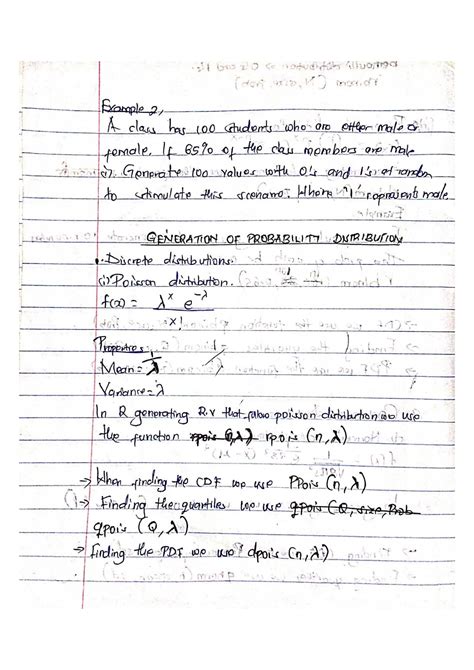 Example 2,
A class has 100 students who are either male or
female. If 65% of the class members are male
(i). Generate 100 values with 0's and 1's at random
to stimulate this scenario. Where '1' represents male
GENERATION OF PROBABILITY DISTRIBUTION
Discrete distributions.
(i) Poisson distribution.
f(x) = λ^x e^-λ
x!
Properties
Mean = λ
Variance = λ
In R generating R.v that follow poisson distribution we use
the function rpois (n, λ)
→ When finding the CDF we use Ppois (n, λ)
→ Finding the quantiles we use qpois (Q, size, Prob
qpois (Q, λ)
→ Finding the PDF we use dpois (n, λ)